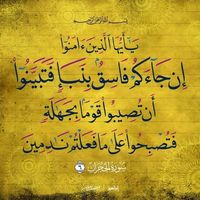 بسم الله الرحمن الرحيم
يَا أَيُّهَا الَّذِينَ ءَامَنُوا
إِن جَاءَكُمْ فَاسِقٌ بِنَبَإٍ فَتَبَيَّنُوا
أَن تُصِيبُوا قَوْمًا بِجَهَالَةٍ
فَتُصْبِحُوا عَلَىٰ مَا فَعَلْتُمْ نَادِمِينَ
سورة الحجرات ٦